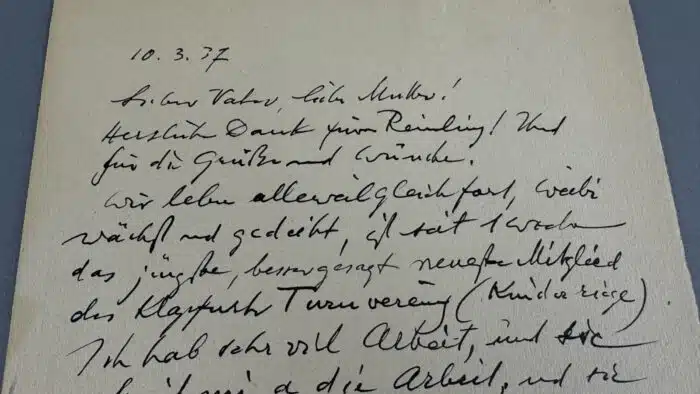 10.3.37
Lieber Vater, liebe Mutter!
Herzlich Dank für Reinling! Und
für die Grüße und Wünsche.
Wir leben alleweil gleich fort,
wächst und gedeiht, ist seit 1 Woche
das jüngste, besser gesagt neueste Mitglied
des Klagenfurter Turnverein (Kinderriege).
Ich hab sehr viel Arbeit, und sie
die Arbeit, und sie